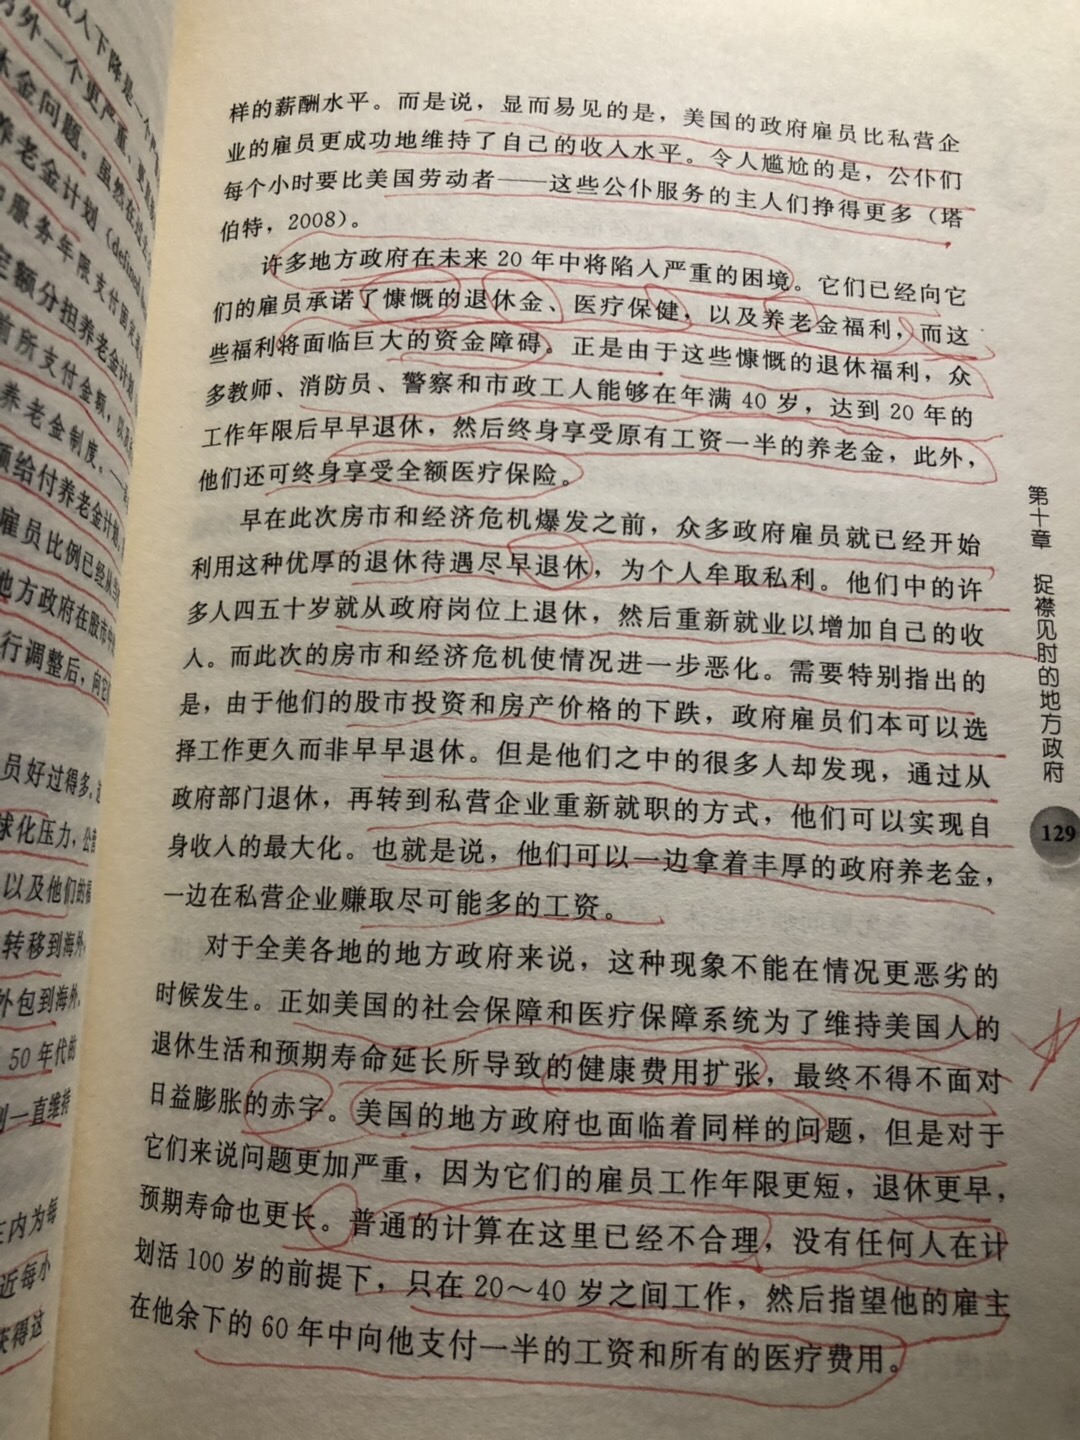 样的薪酬水平。而是说，显而易见的是，美国的政府雇员比私营企
业的雇员更成功地维持了自己的收入水平。令人尴尬的是，公仆们
每个小时要比美国劳动者——这些公仆服务的主人们挣得更多（塔
伯特，2008）。
许多地方政府在未来 20 年中将陷入严重的困境。它们已经向它
们的雇员承诺了慷慨的退休金、医疗保健，以及养老金福利，而这
些福利将面临巨大的资金障碍。正是由于这些慷慨的退休福利，众
多教师、消防员、警察和市政工人能够在年满 40 岁，达到 20 年的
工作年限后早早退休，然后终身享受原有工资一半的养老金，此外，
他们还可终身享受全额医疗保险。
早在此次房市和经济危机爆发之前，众多政府雇员就已经开始
利用这种优厚的退休待遇尽早退休，为个人牟取私利。他们中的许
多人四五十岁就从政府岗位上退休，然后重新就业以增加自己的收
入。而此次的房市和经济危机使情况进一步恶化。需要特别指出的
是，由于他们的股市投资和房产价格的下跌，政府雇员们本可以选
择工作更久而非早早退休。但是他们之中的很多人却发现，通过从
政府部门退休，再转到私营企业重新就职的方式，他们可以实现自
身收入的最大化。也就是说，他们可以一边拿着丰厚的政府养老金，
一边在私营企业赚取尽可能多的工资。
对于全美各地的地方政府来说，这种现象不能在情况更恶劣的
时候发生。正如美国的社会保障和医疗保障系统为了维持美国人的
退休生活和预期寿命延长所导致的健康费用扩张，最终不得不面对
日益膨胀的赤字。美国的地方政府也面临着同样的问题，但是对于
它们来说问题更加严重，因为它们的雇员工作年限更短，退休更早，
预期寿命也更长。普通的计算在这里已经不合理，没有任何人在计
划活 100 岁的前提下，只在 20～40 岁之间工作，然后指望他的雇主
在他余下的 60 年中向他支付一半的工资和所有的医疗费用。
第十章 捉襟见肘的地方政府
129
收入下降是一个
另外一个更严重、更
休金问题。虽然在
养老金计划（defined
服务年限支付固定
定额分担养老金计划
前所支付金额，以
养老金制度。——
额给付养老金计划
雇员比例已经从
地方政府在股市中
行调整后，向它
员好过得多。
球化压力，公
以及他们的福
转移到海外
外包到海外
50 年代的
一直维持
在内为每
近每小
获得这